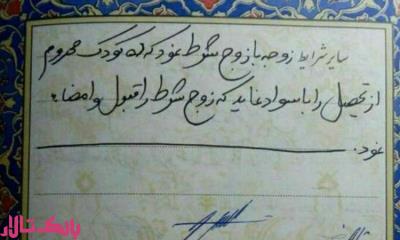 سایر شرایط زوجه با زوج شرط نمود که ۵۱ کودک محروم
از تحصیل را باسواد نماید که زوج شرط را قبول و امضاء
نمود.
بانک تالار